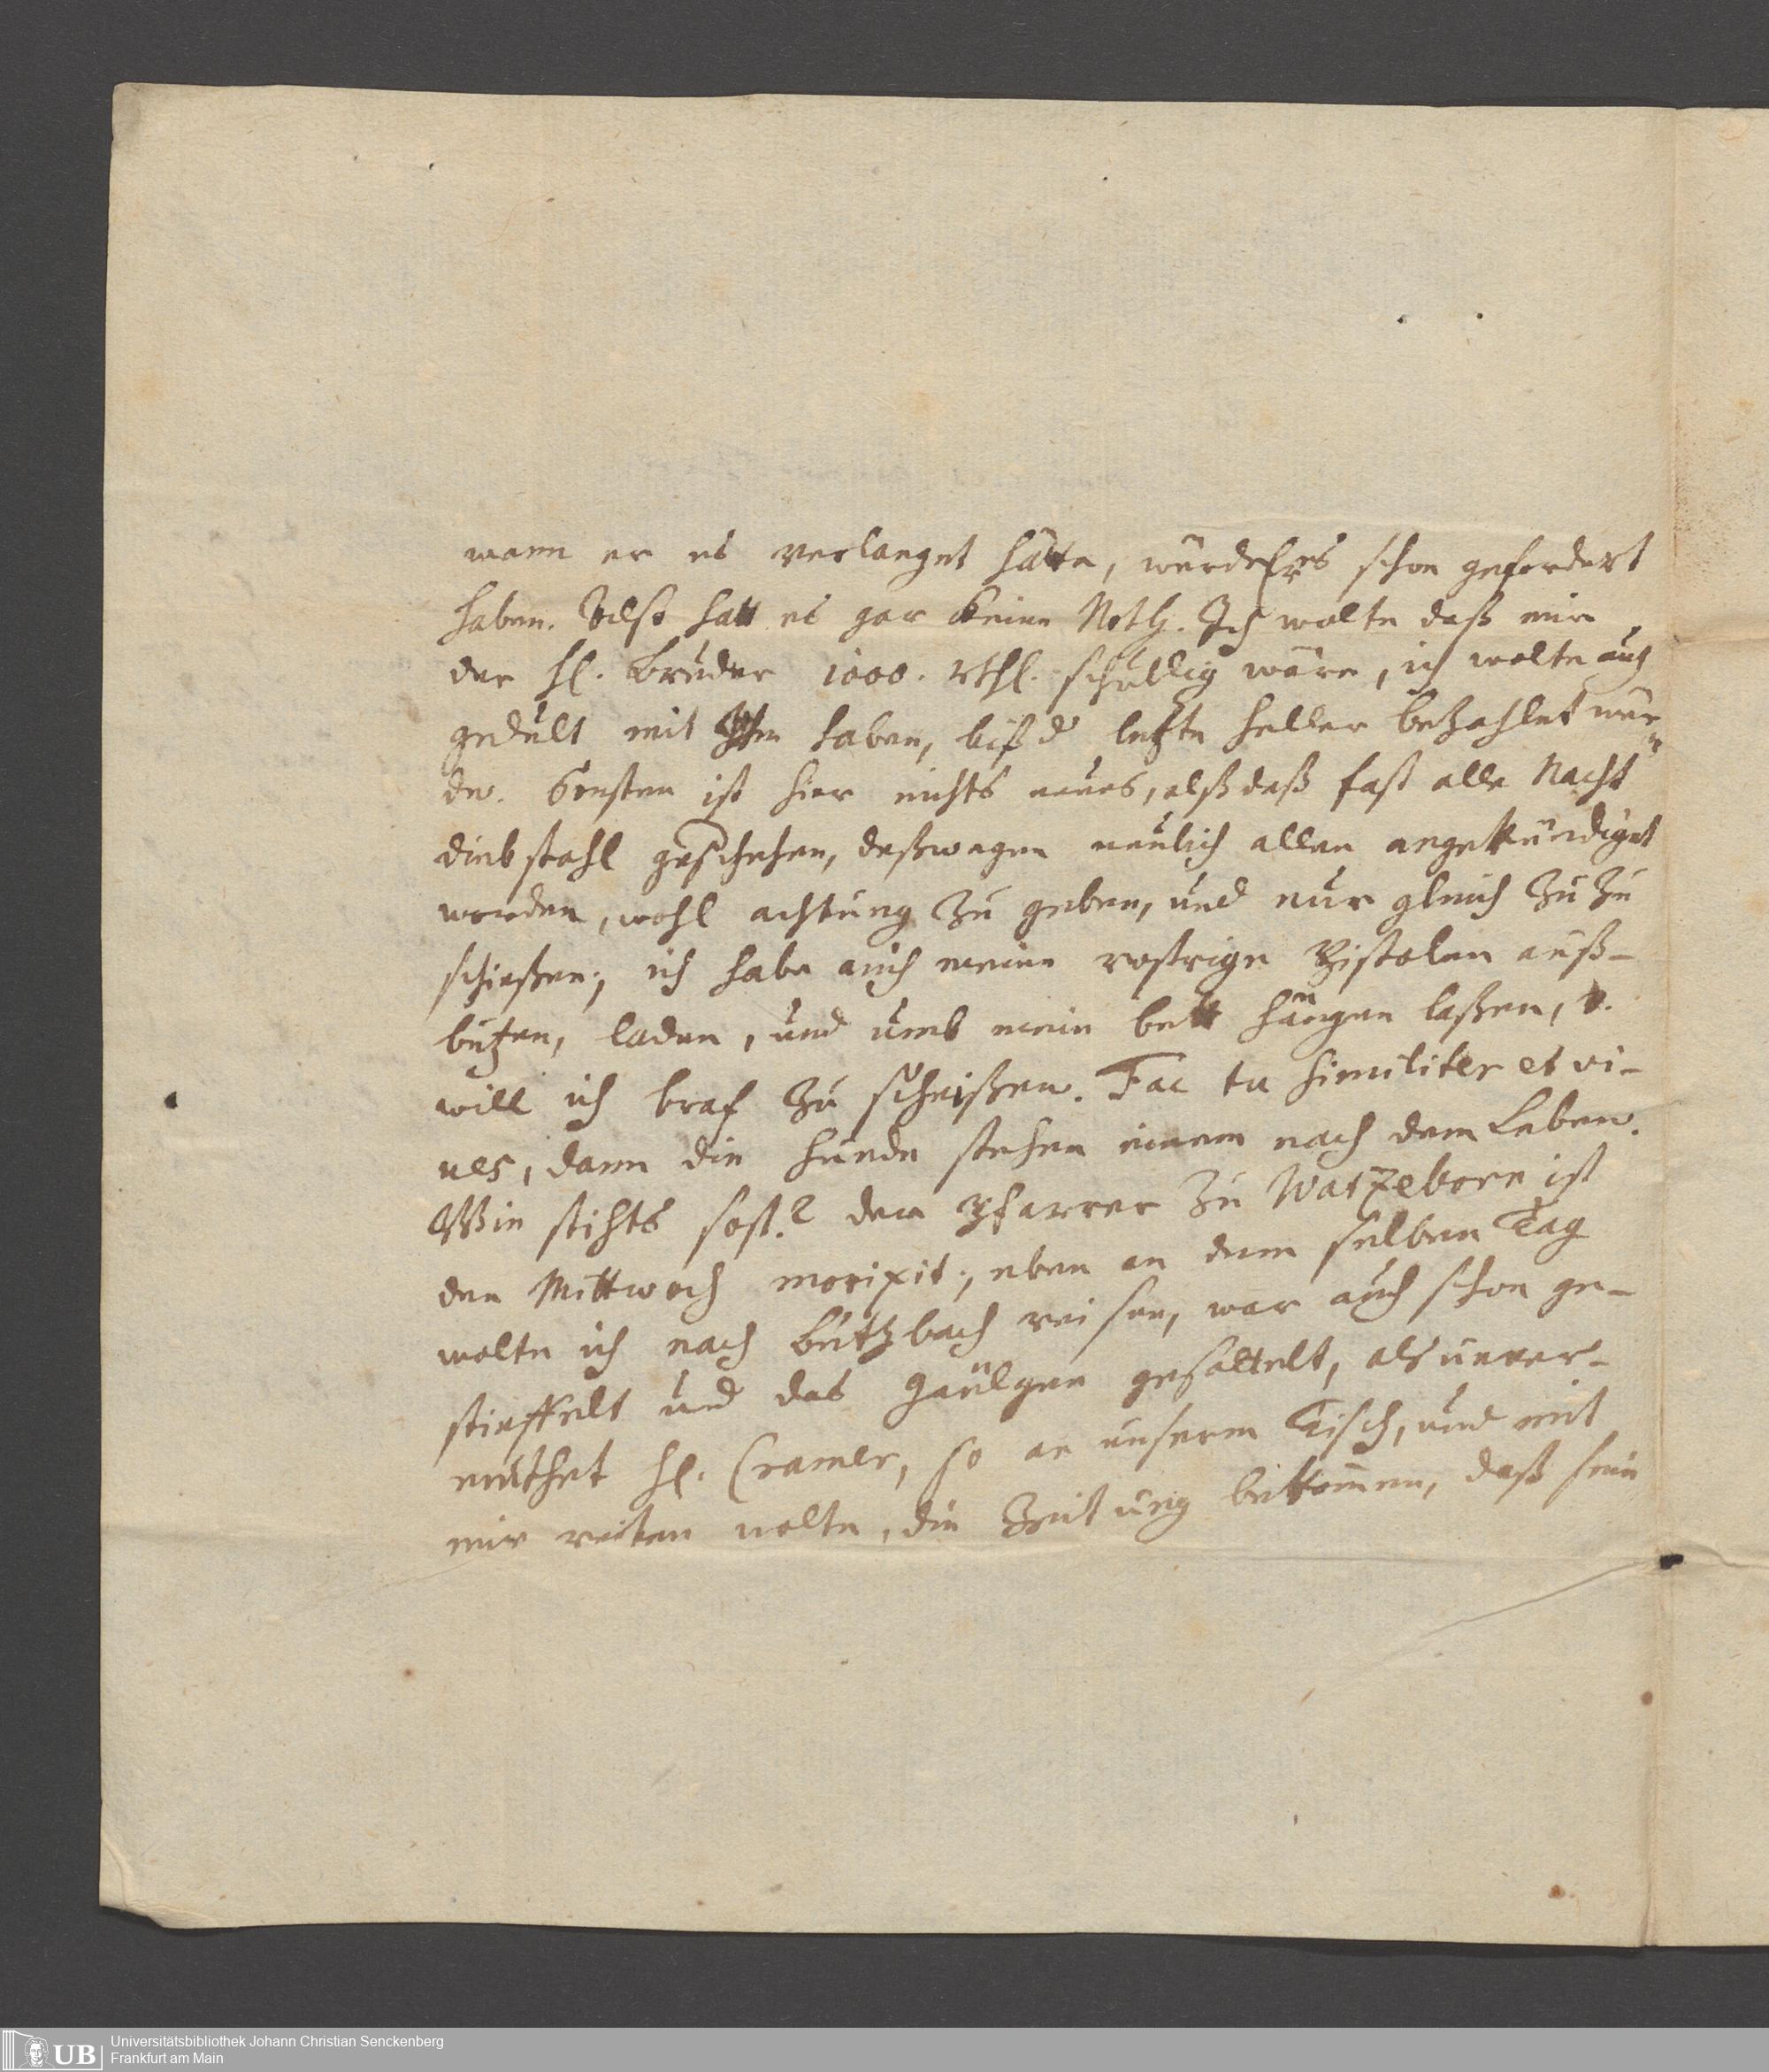 wann er es verlanget hätte, würde Er es schon gefordert
haben. Also hatt es gar keine Noth. Ich wolte daß mir
der H. Bruder 1000. Rthl. schuldig wäre, ich wolte auch
gedult mit Ihm haben, biß d letzte Heller bezahlet wür„
de. Sonsten ist hier nichts neues, alß daß fast alle Nacht
diebstahl geschehen, deßwegen neulich allen angekündiget
worden, wohl achtung zu geben, und nur gleich zu zu
schießen; ich habe auch meine rostrige Pistolen auß-
butzen, laden, und umb mein bett hängen laßen, v.
will ich braf zu scheißen. Fac tu similiter et vi-
ves, dann die Hunde stehen einem nach dem Leben.
Wie stehts sost? der Pfarrer zu Watzeborn ist
den Mittwoch morixit; eben an dem selben Tag
wolte ich nach Butzbach reisen, war auch schon ge-
stieffelt und das Gäulgen gesattelt, als unver-
muthet H. Cramer, so an unserm Tisch, und mit
mir reiten wolte, die Zeitung bekommen, daß sein
Universitätsbibliothek Johann Christian Senckenberg
Frankfurt am Main
UB